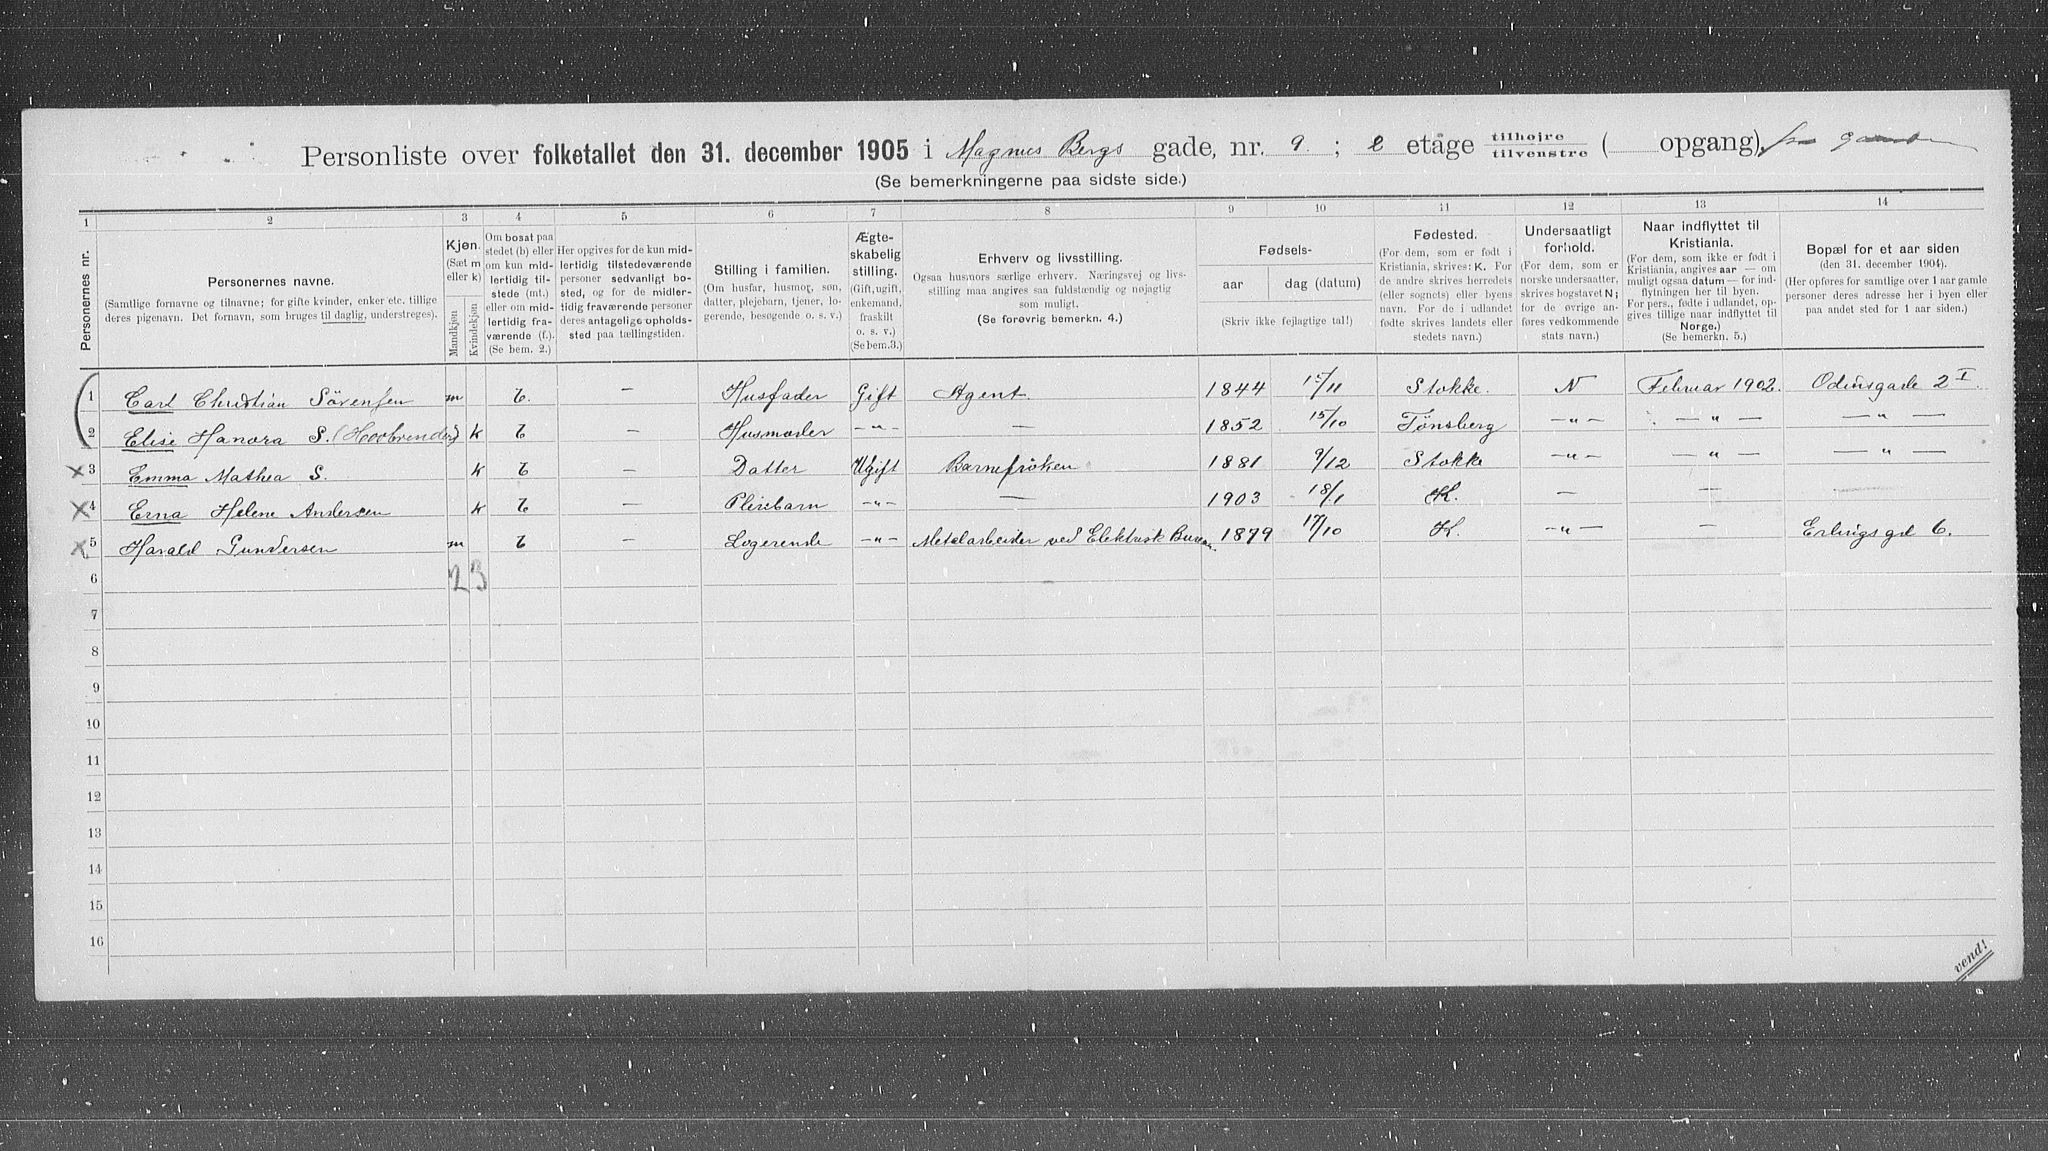 Personliste over folketallet den 31. december 1905 i Magnus Bergs gade, nr. 9. ; 2 etage tilhøjre tilvenstre ( opgang),
(Se bemerkningerne paa sidste side.)
1 2 3 4 5 6 7 8 9 10 11 12 13 14
Personernes nr.
Personernes navne.
(Samtlige fornavne og tilnavne; for gifte kvinder, enker etc. tillige
deres pigenavn. Det fornavn, som bruges til daglig, understreges).
Kjøn.
(Sæt m
eller k)
Mandkjøn
Kvindekjøn
Om bosat paa
stedet (b) eller
om kun mid-
lertidig til-
stede (mt.)
eller om mid-
lertidig fra-
værende (f.).
(Se bem. 2.)
Her opgives for de kun mid-
lertidig tilstedeværende
personer sedvanligt bo-
sted, og for de midler-
tidig fraværende personer
deres antagelige opholds-
sted paa tællingstiden.
Stilling i familien.
(Om husfar, husmor, søn,
datter, plejebarn, tjener, lo-
gerende, besøgende o. s. v.)
Ægte-
skabelig
stilling.
(Gift, ugift,
enkemand,
fraskilt
o. s. v.)
(Se bem. 3.)
Erhverv og livsstilling.
Ogsaa husmors særlige erhverv. Næringsvej og livs-
stilling maa angives saa fuldstændig og nøjagtig
som muligt.
(Se forøvrig bemerkn. 4.)
Fødsels-
aar dag (datum)
(Skriv ikke fejlagtige tal!)
Fødested.
(For dem, som er født i
Kristiania, skrives: K. For
de andre skrives herredets
(eller sognets) eller byens
navn. For de i udlandet
fødte skrives landets eller
stedets navn.)
Undersaatligt
forhold.
(For dem, som er
norske undersaatter,
skrives bogstavet N;
for de øvrige an-
føres vedkommende
stats navn.)
Naar indflyttet til
Kristiania.
(For dem, som ikke er født i
Kristiania, angives aar — om
muligt ogsaa datum — for ind-
flytningen her til byen.
For pers., fødte i udlandet, op-
gives tillige naar indflyttet til
Norge.)
(Se bemerkn. 5.)
Bopæl for et aar siden
(den 31. december 1904).
(Her opføres for samtlige over 1 aar gamle
personer deres adresse her i byen eller
paa andet sted for 1 aar siden.)
1 Carl Christian Sörensen m b. — Husfader Gift Agent 1844 15/11 Stokke. N Februar 1902. Odinsgade 2 I.
2 Elise Hanora S. k b — Husmoder —"— — 1852 15/10 Tønsberg —"— —"— —"—
3 Emma Mathea S. k b — Datter Ugift Barnefrøken 1881 9/12 Stokke —"— —"— —"—
4 Erna Helene Andersen k b — Pleiebarn —"— — 1903 18/1 K. — —
5 Harald Gundersen m b — Logerende —"— Metalarbeider ved Elektrisk Bureau. 1879 17/10 K. —"— — Erlingsgd 6.
6 2 3
7
8
9
10
11
12
13
14
15
16
vend!